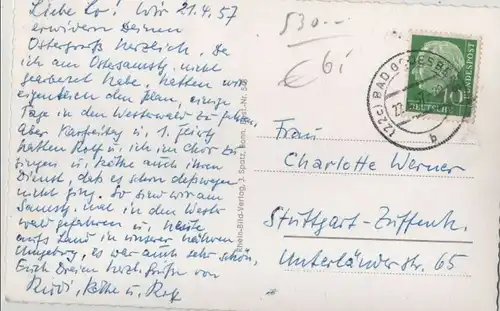 Liebe Lo! Wir 21.4.57
erwidern Deinen
Ostergruß herzlich. Da
ich am Ostersamstg. nicht
gearbeitet habe, hatten wir
eigentlich den Plan, einige
Tage in den Westerwald zu fahren,
Aber Karfreitag u. 1. Feiertg
hatten Rolf u. ich im Chor zu
singen u. Käthe auch ihren
Dienst, daß es schon deßwegen
nicht ging. So sind wir am
Samstg. mal in den Wester-
wald gefahren u. heute
aufs Land in unserer näheren
Umgebung, es war auch sehr schön.
Euch Dreien herzl. Grüße von
Rudi, Käthe u. Rolf
Rhein-Bild-Verlag, J. Spatz, Bonn
530.--
€ 6i
(22c) BAD GODESBERG
b
DEUTSCHE BUNDESPOST
10
Frau
Charlotte Werner
Stuttgart-Zuffenh.
Unterländerstr. 65